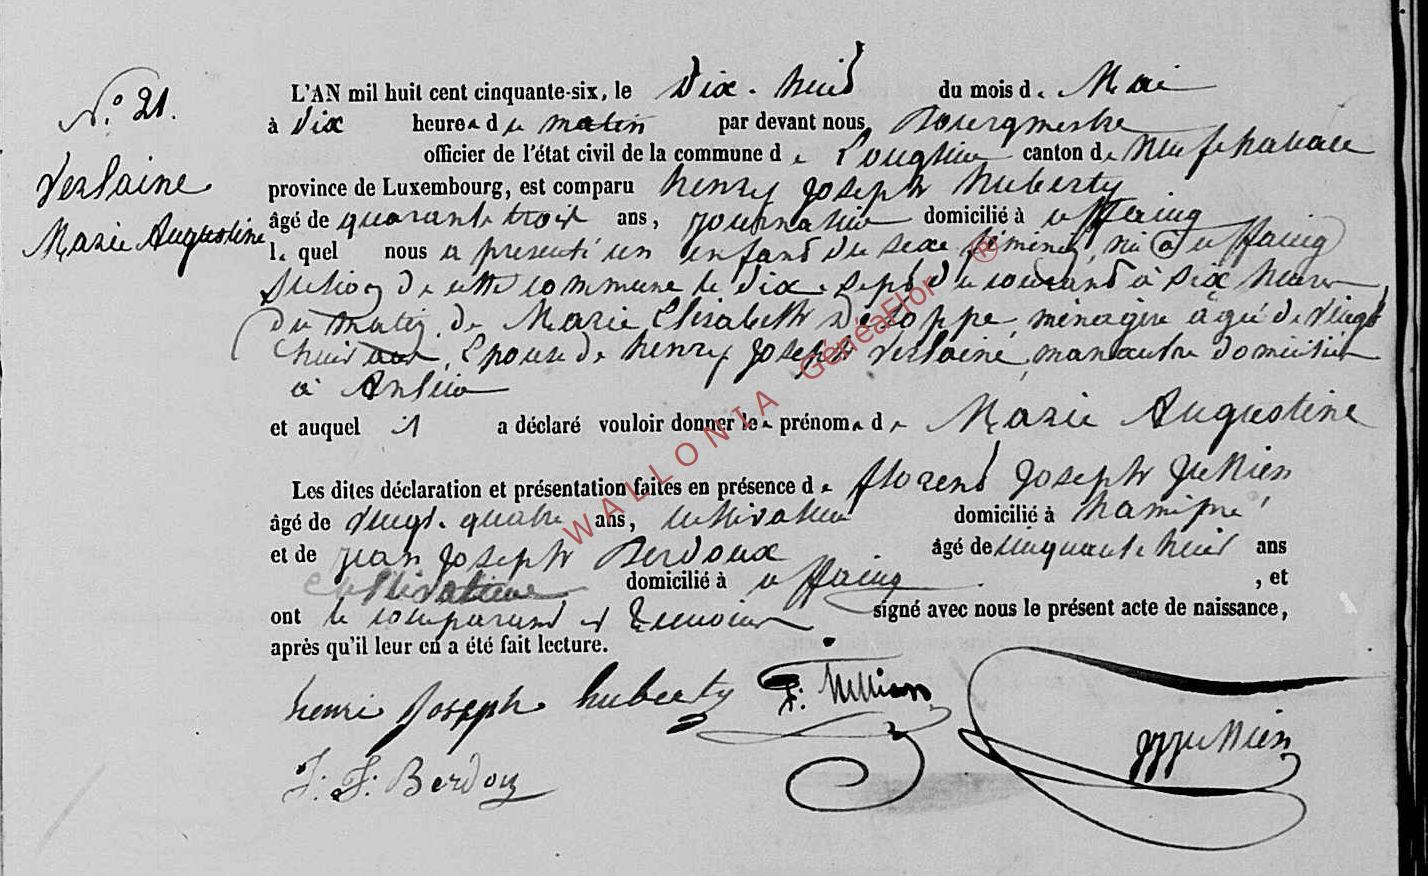 N.° 21.
Verlaine
Marie Augustine
L'AN mil huit cent cinquante-six, le Dix-huit du mois de Mai
à Dix heures du matin par devant nous, Bourgmestre
officier de l'état civil de la commune de Longlier canton de Neufchateau
province de Luxembourg, est comparu henry Joseph huberty
âgé de quarante trois ans, Journalier domicilié à uffaing
lequel nous a presenté un enfant du sexe féminin, né à uffaing
section de cette commune le dix-sept du courant à six heures
du matin, de Marie Elisabeth ménagère agée de vingt
huit ans, Epouse de henry Joseph Verlaine, manœuvre domicilié
à Anlier
et auquel il a déclaré vouloir donner les prénoms de Marie Augustine
Les dites déclaration et présentation faites en présence de florent Joseph Jullien
âgé de vingt-quatre ans, cultivateur domicilié à hamipré
et de jean Joseph Berdoux âgé de cinquante huit ans
cultivateur domicilié à uffaing, et
ont le comparant et temoins signé avec nous le présent acte de naissance,
après qu'il leur en a été fait lecture.
henri Joseph huberty F. Jullien
JJ Jullien
J. J. Berdoux
WALLONIA GeneaFlor ®